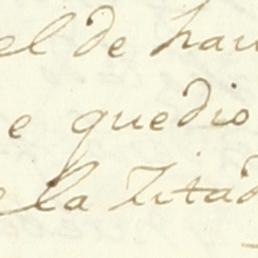 el de hau
e quedio
e la Zitad